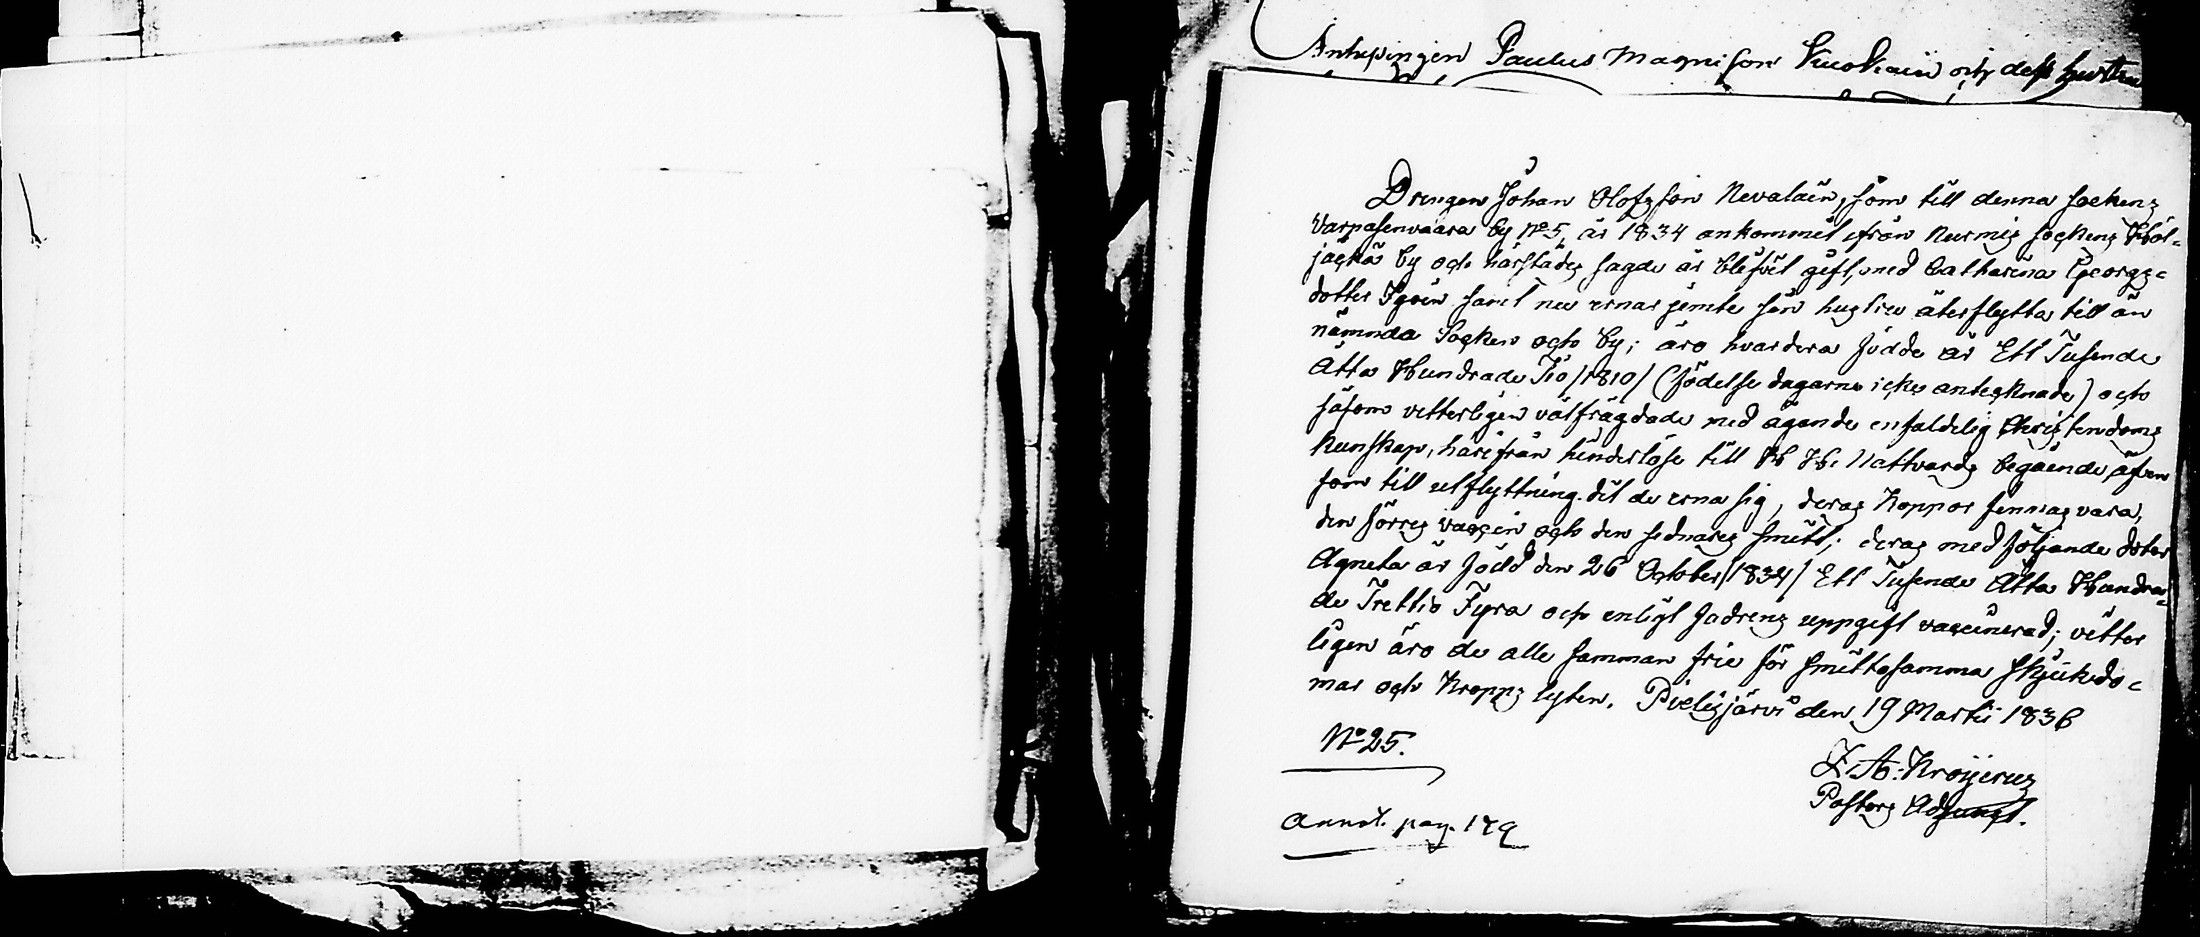 Inhysingen Paulus Magnisson Kuokain och dess hustru
Drengen Johan Olofsson Nevalain, som till denna Sockens
Varpasenvaara by No 5, år 1834 ankommit ifrån Nurmis Sockens Höl-
jäckä by och härstädes sagde år blifvit gift, med Catharina Georgs-
dotter Igoin samt nu ernar jemte sin hustru återflytta till än
nämnda Socken och by; äro hvardera födde år Ett Tusende
Åtta Hundrade Tio /1810/ (födelse dagarne icke antecknade) och
såsom vitterligen välfrägdade med ägande enfaldelig Christendoms
kunskap, härifrån hinderlöse till H. H. Nattvards begående, äfven
som till utflyttning dit de erna sig, deras Koppor finnas vara,
den förres vaccin och den sednares smitt; deras medföljande doter
Agneta är född den 26 October /1834/ Ett Tusende Åtta Hundra-
de Trettio Fyra och enligt fadrens uppgift vaccinerad; vitter
ligen äro de alle samman frie för smittosamma skjukdo-
mar och Kropps lyten. Pielisjärvi den 19 Martii 1836
No 25.
Kröijerus
Pastors Adjunct.
Annot. pag. 179